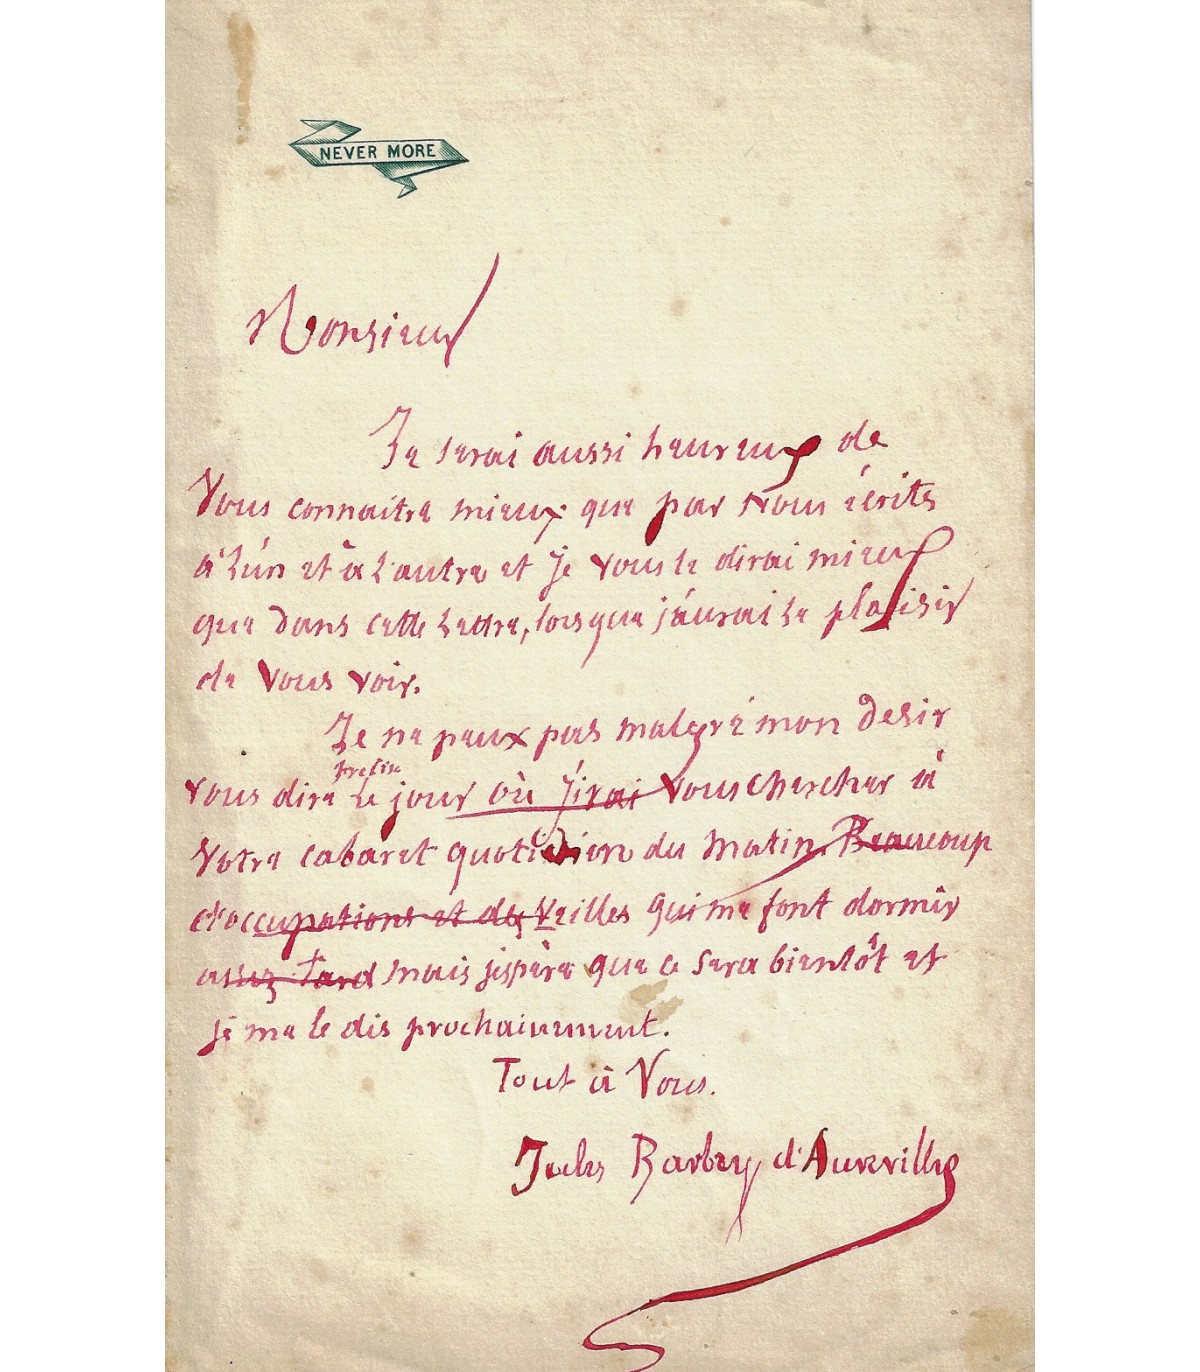 NEVER MORE
Monsieur
Je serai aussi heureux de
Vous connaitre mieux que par nous écrits
à l'un et à l'autre et je vous le dirai mieux
que dans cette lettre, lorsque j'aurai le plaisir
de Vous voir.
Je ne peux pas malgré mon desir
precise
vous dire le jour où j'irai vous chercher à
Votre cabaret quotidien du matin. Beaucoup
d'occupations et des Veilles qui me font dormir
assez tard mais j'espère que ce sera bientôt et
je me le dis prochainement.
Tout à Vous.
Jules Barbey d'Aurevilly